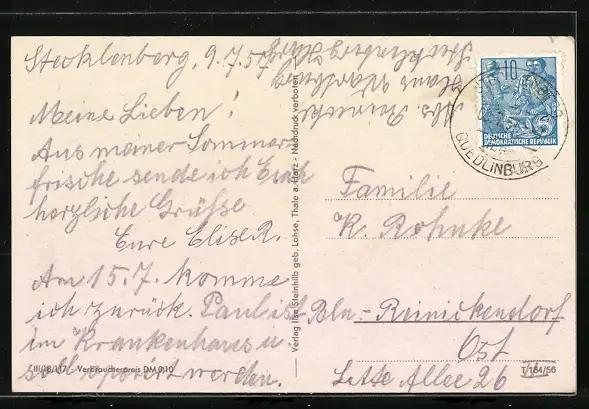 Stecklenberg, 9.7.57
Meine Lieben!
Aus meiner Sommer-
frische sende ich Euch
herzliche Grüße
Eure Elise R.
Am 15.7. komme
ich zurück. Paul ist
im Krankenhaus u.
soll operiert werden.
III/18/117 Verbraucherpreis DM 0,10
Verlag Ilse Steinhilb geb. Lohse, Thale a. Harz - Nachdruck verboten
Abs. Reinicke
Haus
Stecklenberg Harz
10
DEUTSCHE
DEMOKRATISCHE REPUBLIK
QUEDLINBURG
Familie
K. Rohnke
Bln.-Reinickendorf
Ost
Lette Allee 26
T 184/56